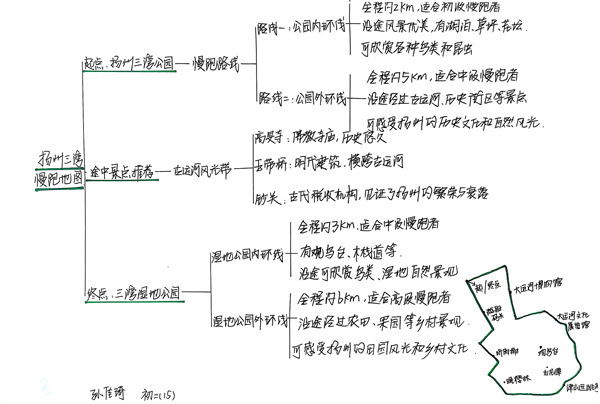 扬州三湾
慢跑地图
起点:扬州三湾公园
慢跑路线
路线一:公园内环线
全程约2km,适合初级慢跑者
沿途风景优美,有湖泊、草坪、花坛
可欣赏各种鸟类和昆虫
路线二:公园外环线
全程约5km,适合中级慢跑者
沿途经过古运河、历史街区等景点
可感受扬州的历史文化和自然风光。
途中景点推荐
古运河风光带
高旻寺:佛教寺庙,历史悠久
明代建筑,横跨古运河
钞关:古代税收机构,见证了扬州的繁荣与衰落
终点:三湾湿地公园
湿地公园内环线
全程约3km,适合中级慢跑者
有观鸟台、木栈道等
沿途可欣赏鸟类、湿地自然景观
湿地公园外环线
全程约6km,适合高级慢跑者
沿途经过农田、果园等乡村景观
可感受扬州的田园风光和乡村文化
起/终点
大运河博物馆
大运河文化
展览馆
观鸟台
孙佳琦 初二(15)